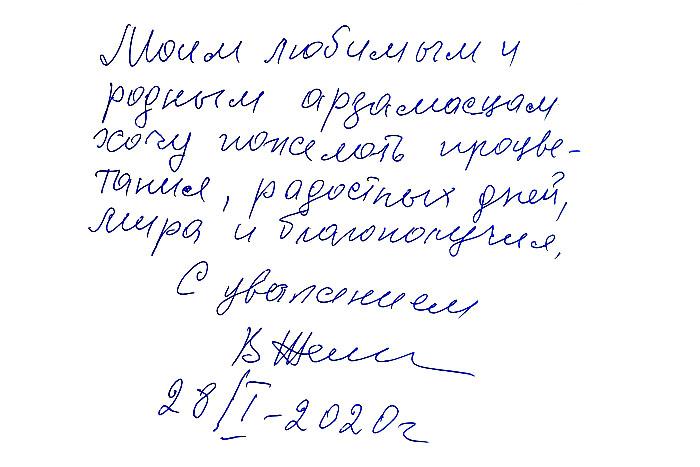 Моим любимым и
родным арзамасцам
хочу пожелать процве-
тания, радостных дней,
мира и благополучия.
С уважением
28/I-2020г